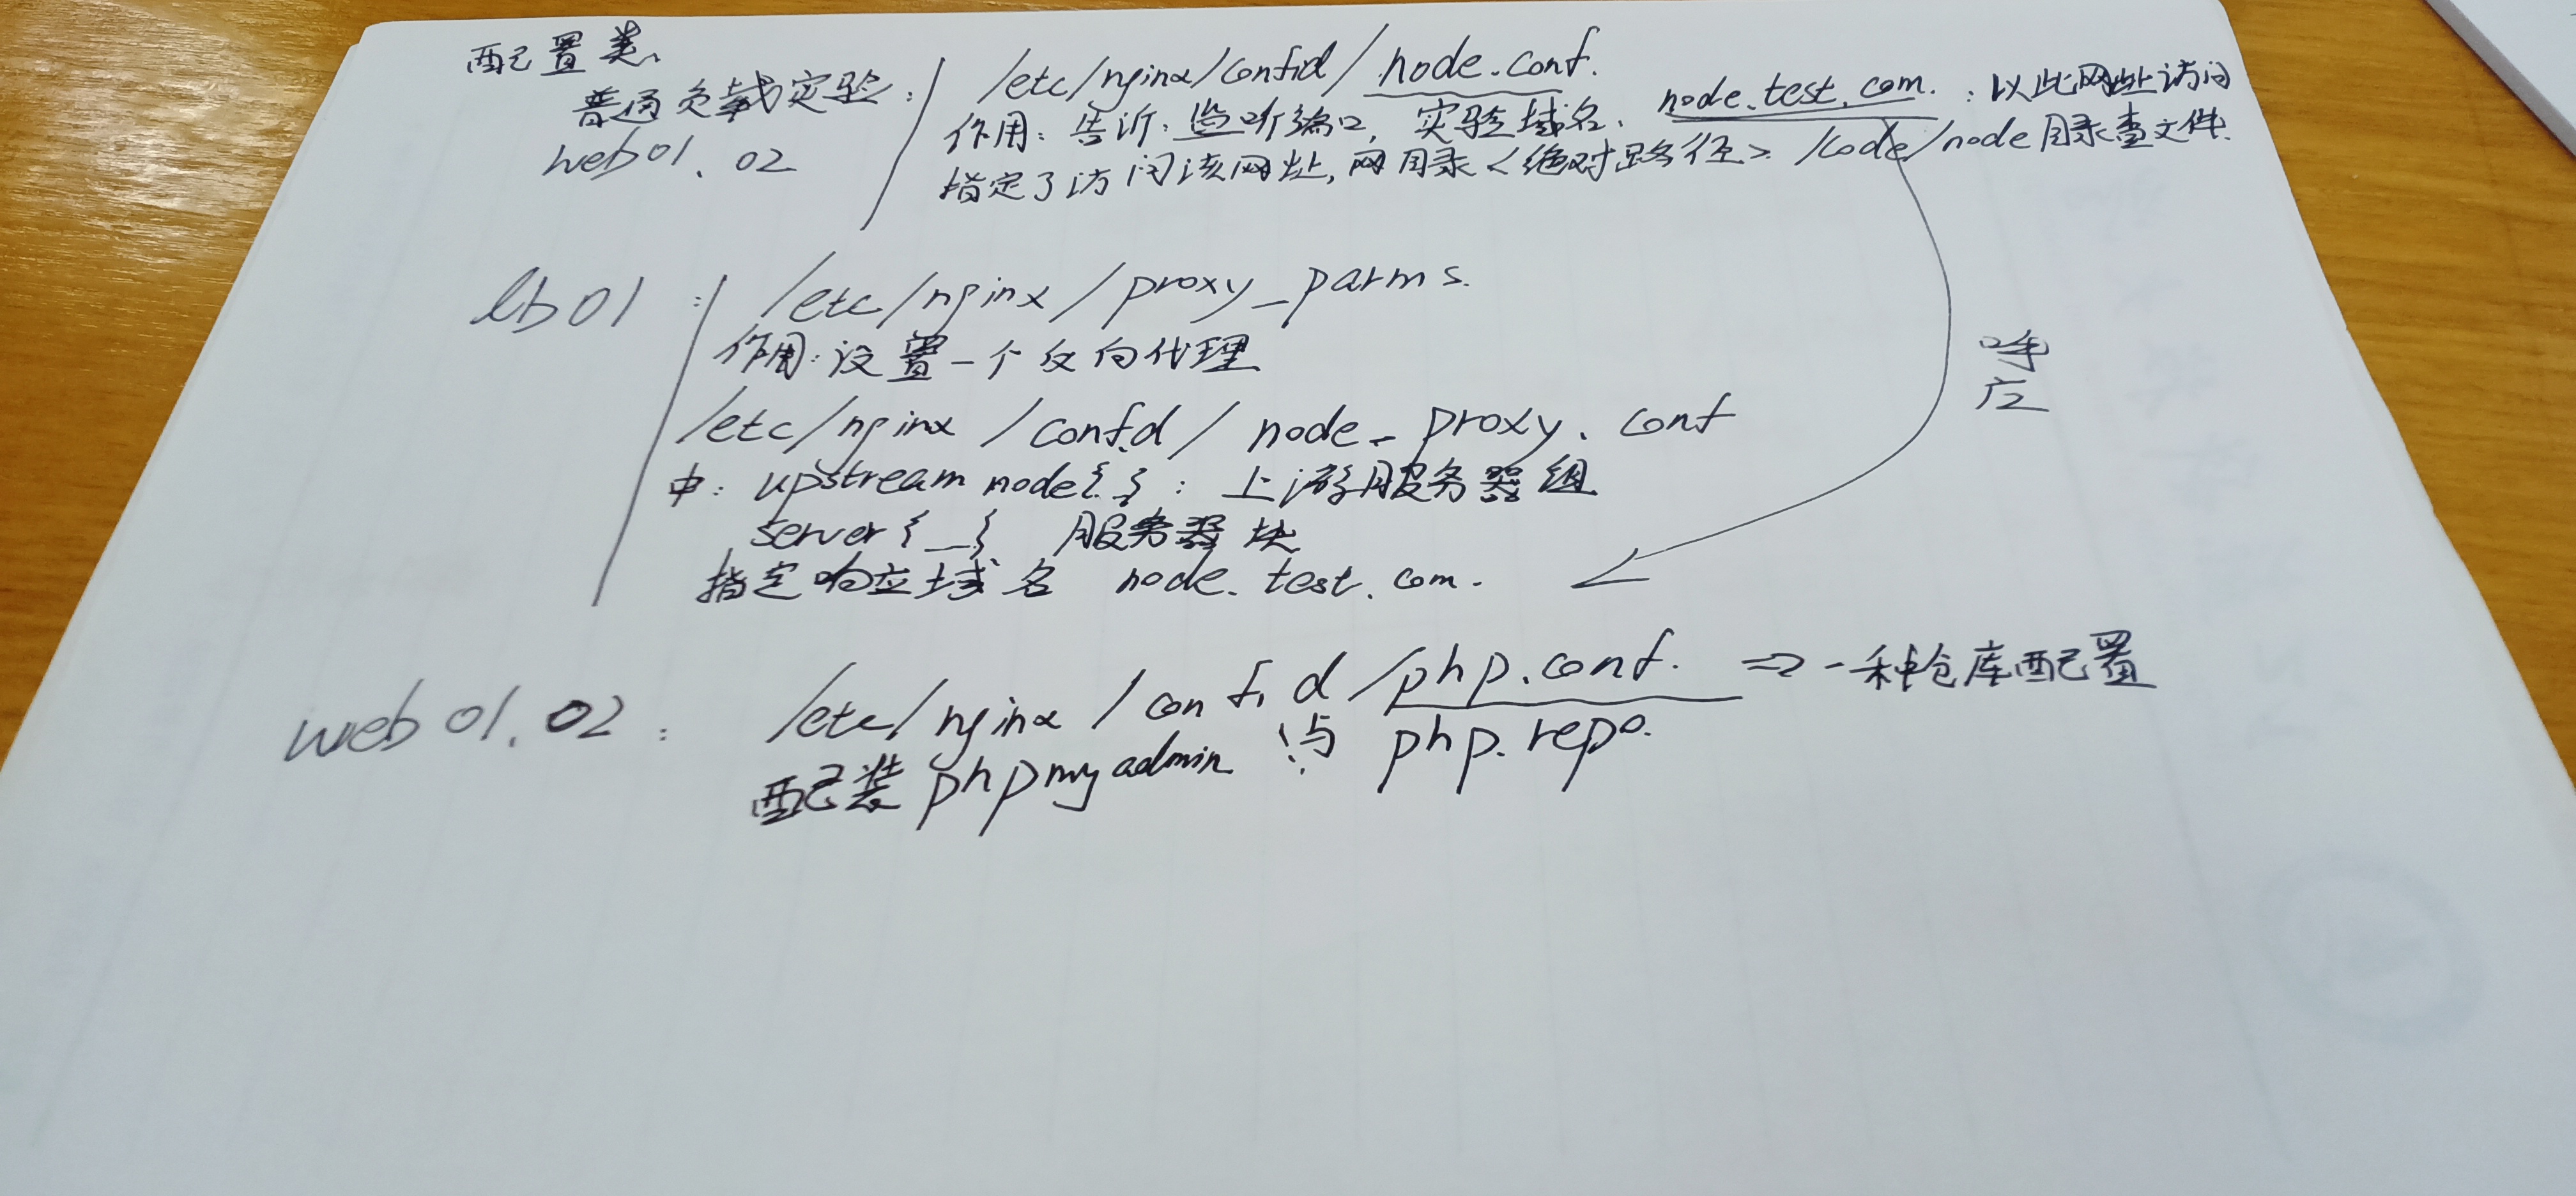 配置类、
普通负载实验:
web01、02
/etc/nginx/conf.d/node.conf.
作用:告诉:监听端口,实验域名、node.test.com.:以此网址访问
指定了访问该网址,网目录<绝对路径>/code/node目录查文件.
lb01:
/etc/nginx/proxy_parms.
作用:设置一个反向代理
/etc/nginx/conf.d/node_proxy.conf
中:upstream node{_}:上游服务器组
server{_} 服务器块
指定响应域名 node.test.com.
呼
应
web01.02:
/etc/nginx/conf.d/php.conf. ⇒一种仓库配置
配装phpmyadmin 与 php.repo.